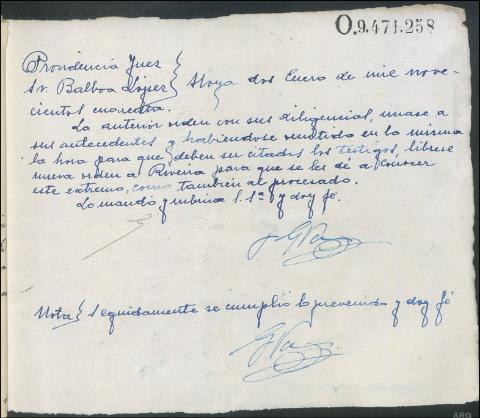 O.9.471.258
Providencia Juez
Sr. Balboa López } Noya dos Enero de mil nove-
cientos cuarenta.
La anterior orden con sus diligencias, unase a
sus antecedentes y habiendose omitido en la misma
la hora para que deben ser citados los testigos, librese
nueva orden a Riveira para que se les dé a conocer
este extremo, como también al procesado.
Lo mandó y rubrica S. Sª y doy fé.
Nota } Seguidamente se cumplió lo prevenido y doy fé
ARG